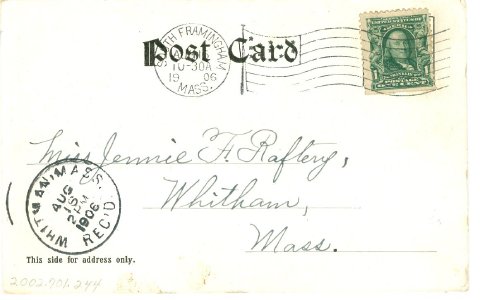 Post Card
SOUTH FRAMINGHAM
10-30A
19 06
MASS.
1 1
ONE CENT
Miss Jennie F. Raftery,
Whitham,
Mass.
WHITMAN, MASS.
AUG
15
2 PM
1906
REC'D.
This side for address only.
2002.901.244